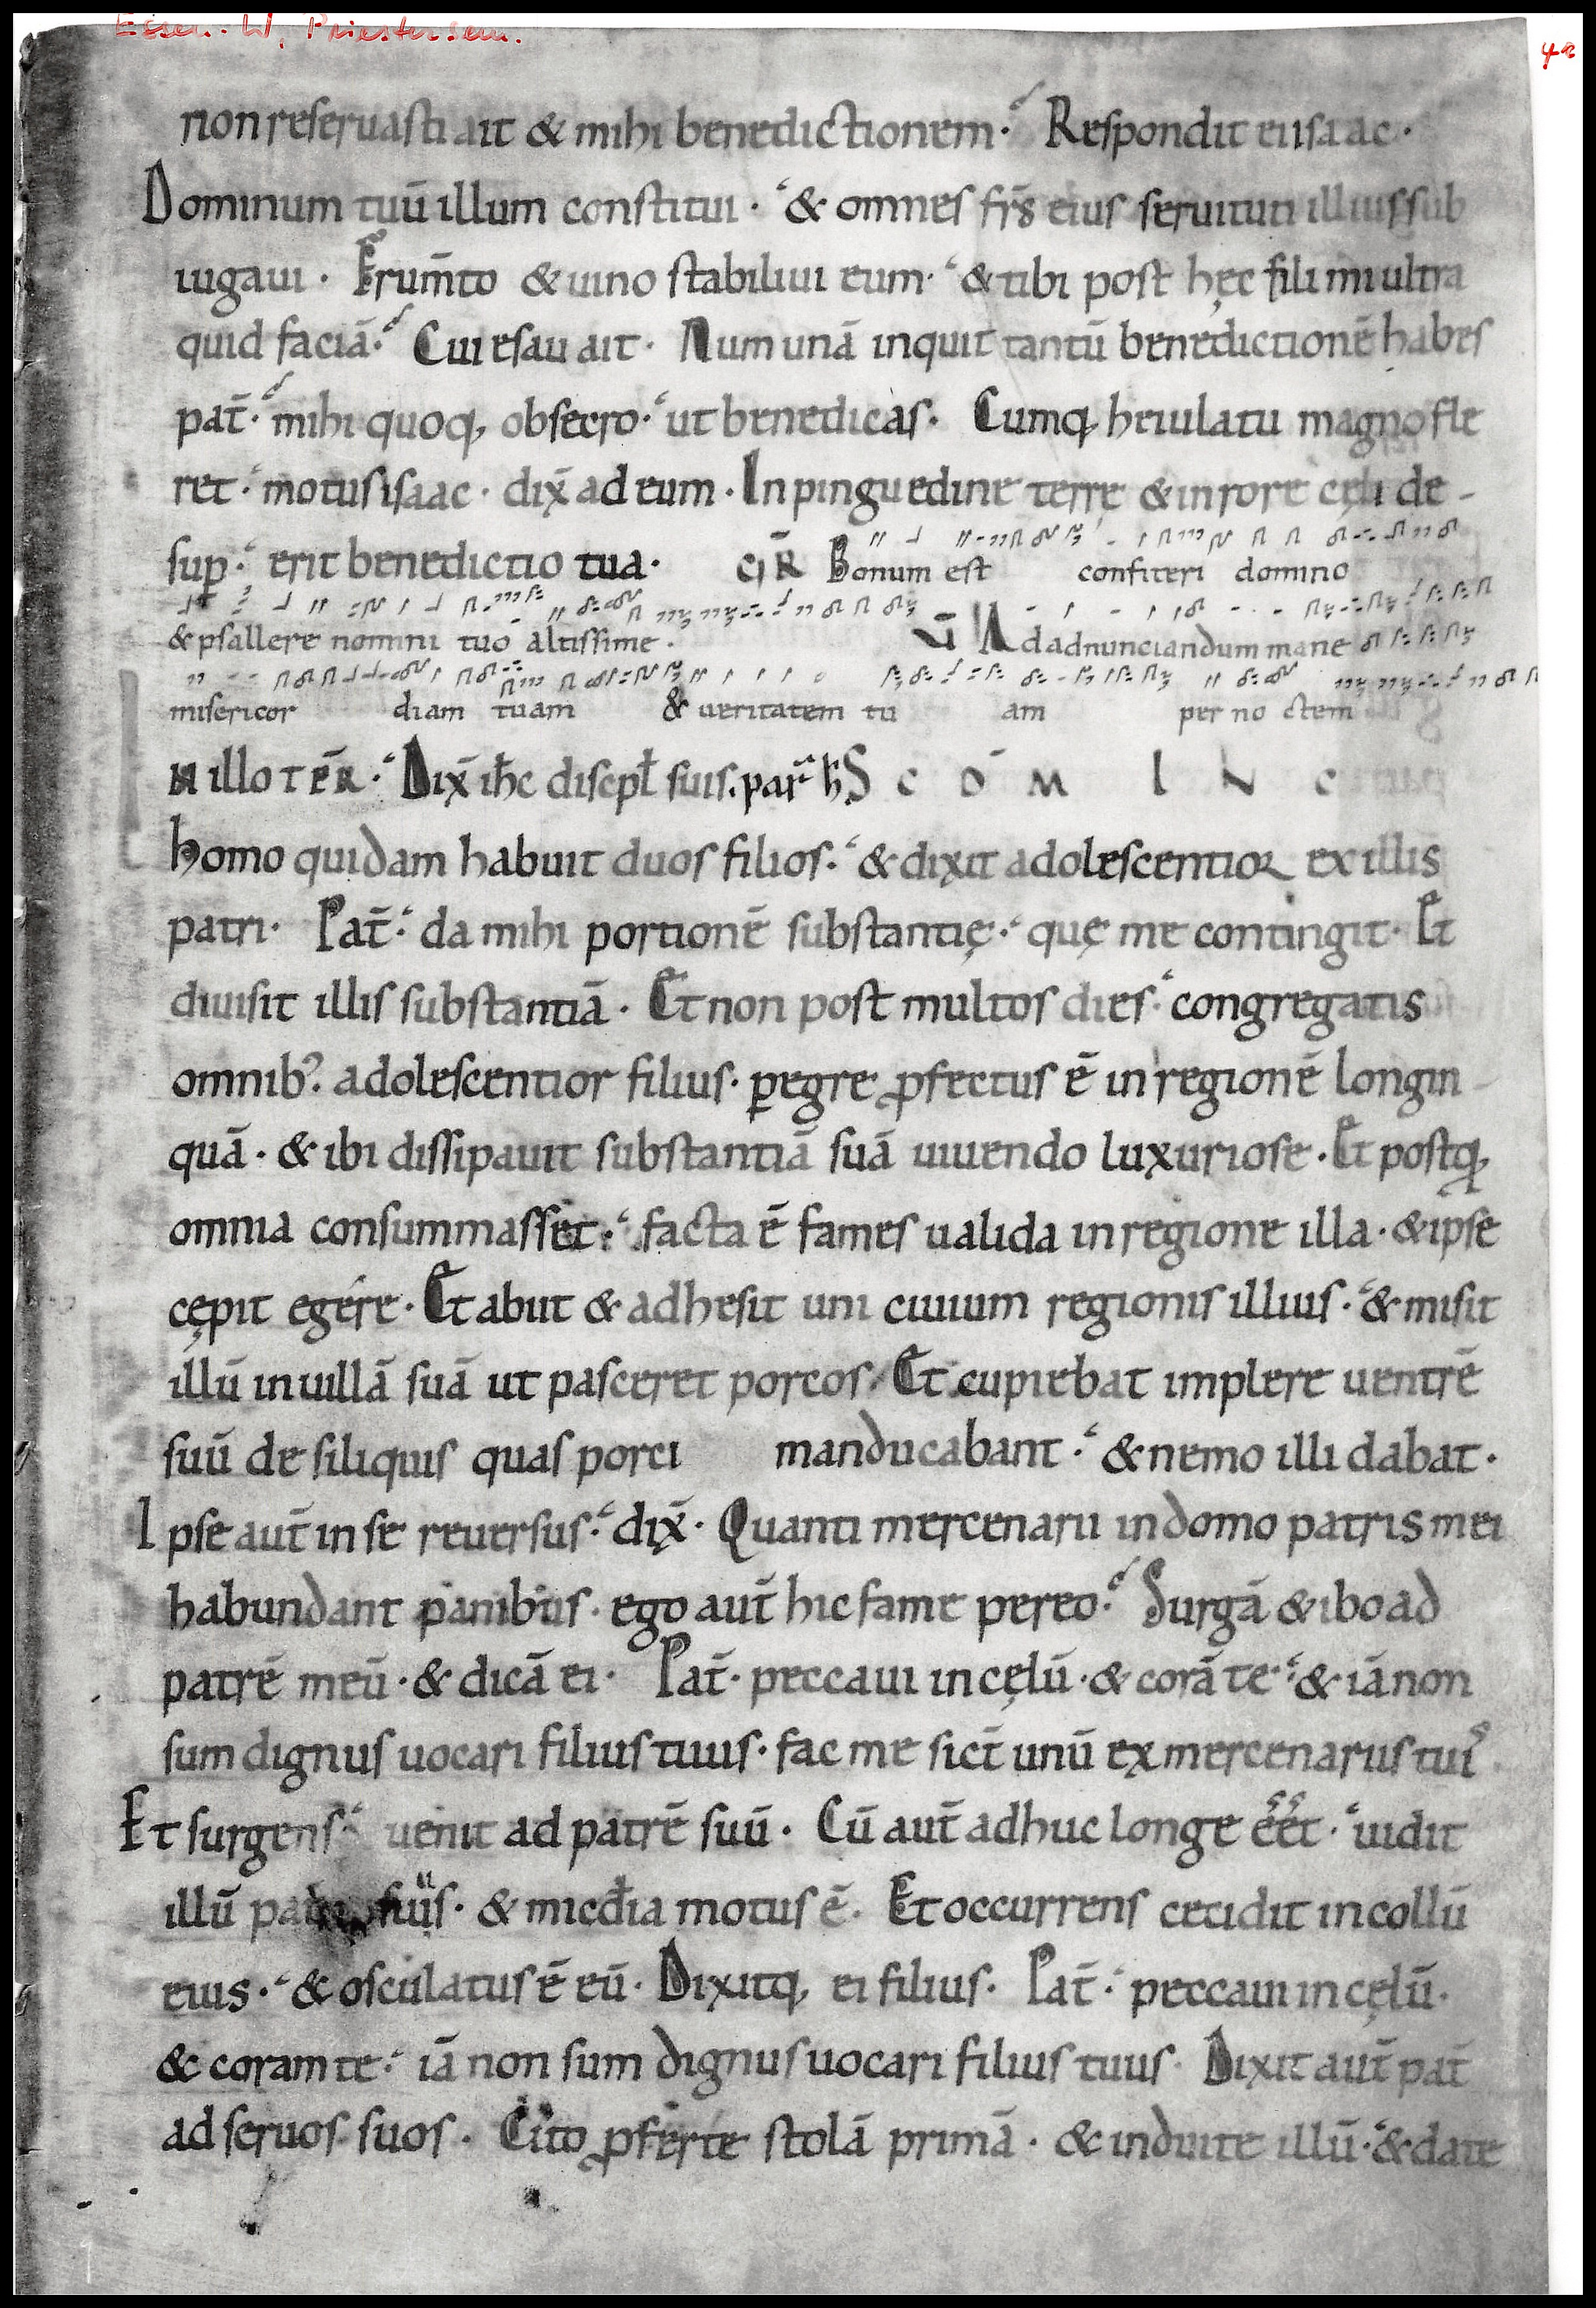 Essen. W. Priestersem.
4a
non reseruasti ait & mihi benedictionem. Respondit ei isaac.
Dominum tuū illum constitui. & omnes frs̄ eius seruituti illius sub
iugaui. Frum̄to & uino stabiliui eum. & tibi post hęc fili mi ultra
quid faciā. Cui esau ait. Num unā inquit tantū benedictionē habes
pat̄. mihi quoq, obsecro. ut benedicas. Cumq, heiulatu magno fle
ret. motus isaac. dix̄ ad eum. In pinguedine terrę & in rore cęli de-
sup̱. erit benedictio tua. GR̄ Bonum est confiteri domino
& psallere nomini tuo altissime. V̄ Ad adnunciandum mane
misericor diam tuam & ueritatem tu am per no ctem
IN illo TēR. Dix̄ ih̄c discipl̄ suis. par h̄ S C̄ D̄ M L N C
homo quidam habuit duos filios. & dixit adolescentior ex illis
patri. Pat̄. da mihi portionē substantię. quę me contingit. Et
diuisit illis substantiā. Et non post multos dies. congregatis
omnib;. adolescentior filius. p̱egre ꝓfectus ē in regionē longin-
quā. & ibi dissipauit substantiā suā uiuendo luxuriose. Et postq,
omnia consummasset. facta ē fames ualida in regione illa. & ipse
cępit egére. Et abiit & adhesit uni ciuium regionis illius. & misit
illū in uillā suā ut pasceret porcos. Et cupiebat implere uentrē
suū de siliquis quas porci manducabant. & nemo illi dabat.
Ipse aut̄ in se reuersus. dix̄. Quanti mercenarii in domo patris mei
habundant panibus. ego aut̄ hic fame pereo. Surgā & ibo ad
patrē meū. & dicā ei. Pat̄. peccaui in cęlū. & corā te. & iā non
sum dignus uocari filius tuus. fac me sict̄ unū ex mercenariis tuis
Et surgens. uenit ad patrē suū. Cū aut̄ adhuc longe eēt. uidit
illū suus. & mićdia motus ē. Et occurrens cecidit in collū
eius. & osculatus ē eū. Dixitq, ei filius. Pat̄. peccaui in cęlū.
& coram te. iā non sum dignus uocari filius tuus. Dixit aut̄ pat̄
ad seruos suos. Cito ꝓferte stolā primā. & induite illū. & date